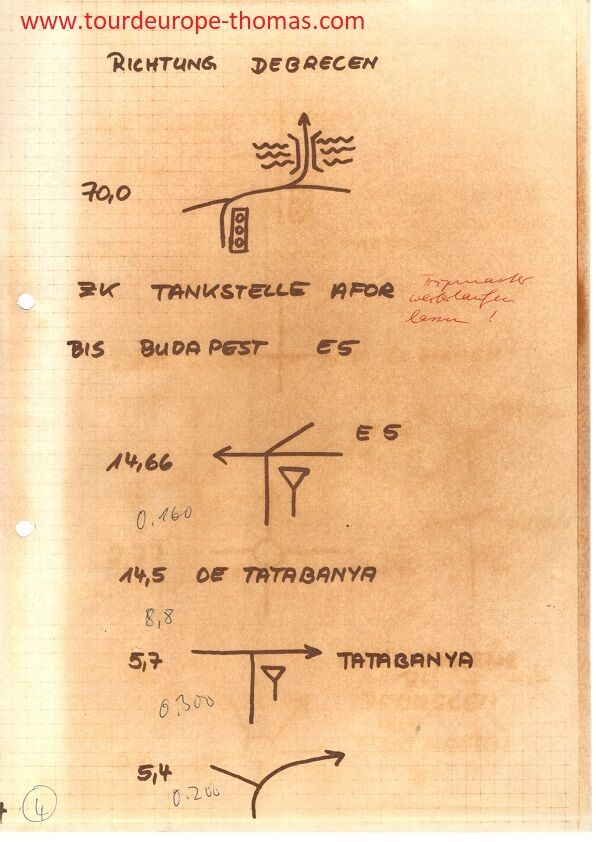 www.tourdeurope-thomas.com
RICHTUNG DEBRECEN
70,0
ZK TANKSTELLE AFOR
Tripmaster
weiterlaufen
lassen !
BIS BUDAPEST E5
14,66
E 5
0.160
14,5 OE TATABANYA
8,8
5,7
TATABANYA
0.300
5,4
0.200
4